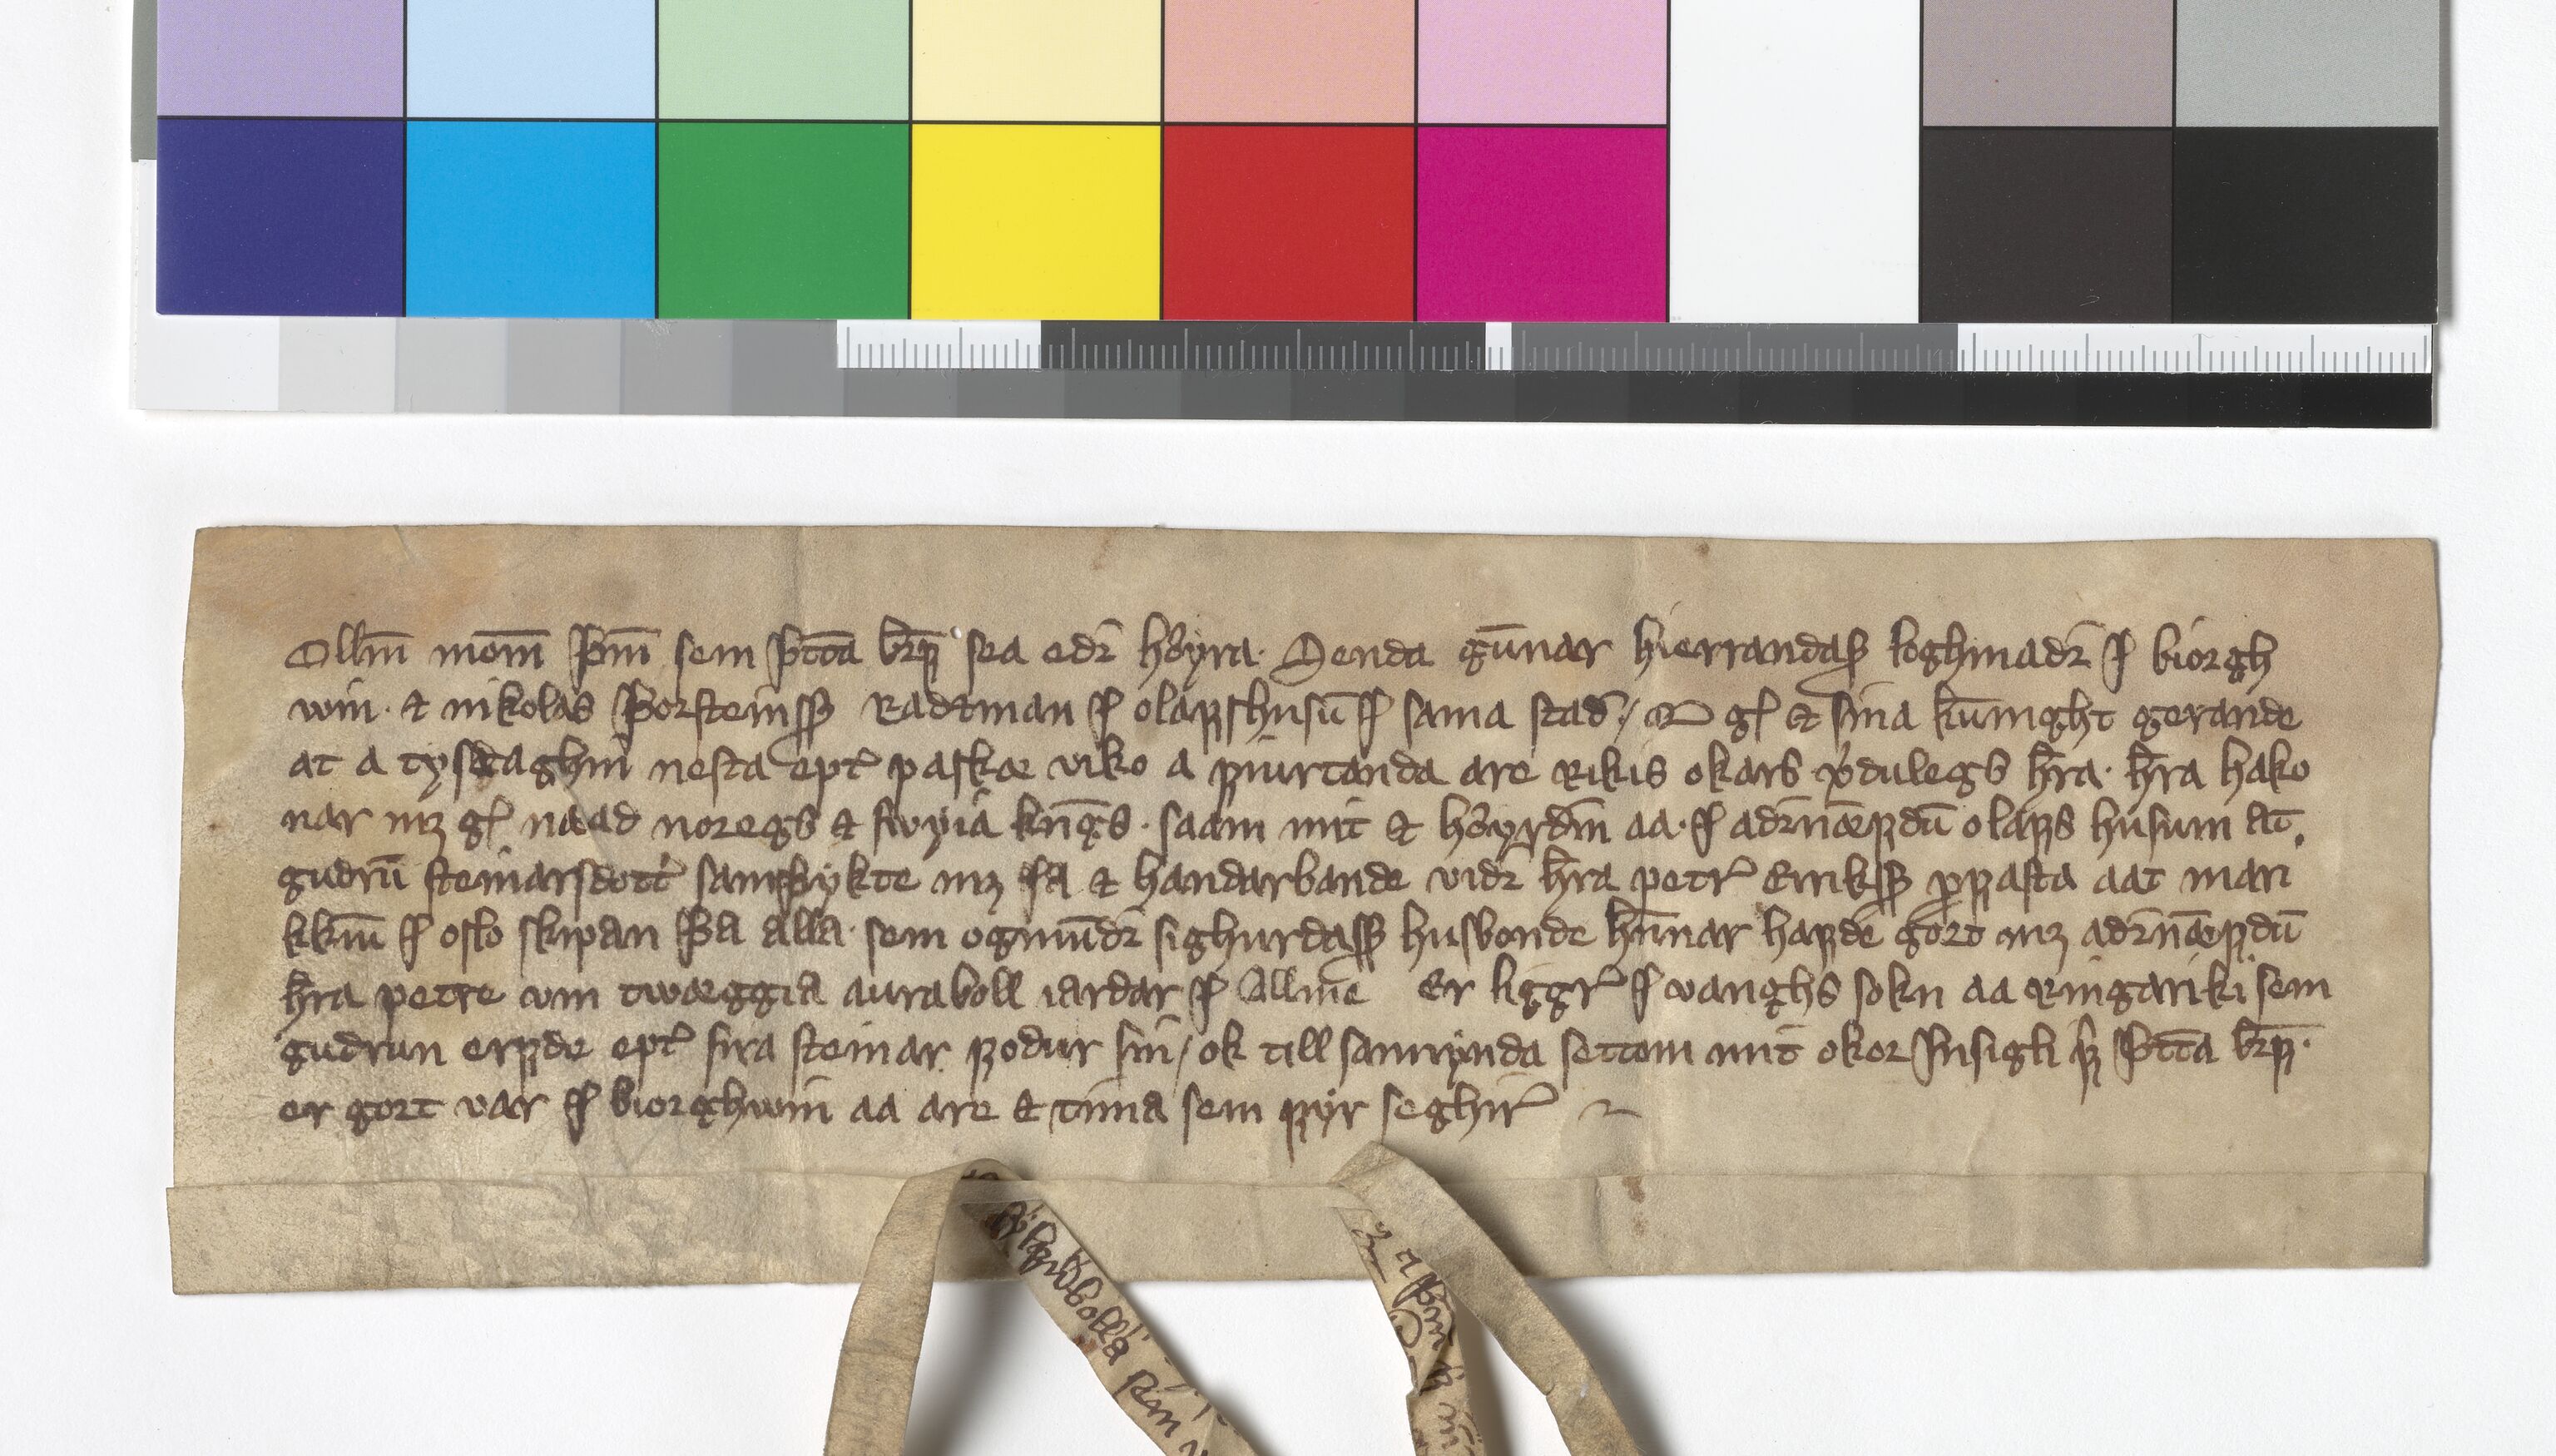 Ollm̄ mōm̄ þm̄ sem þtt̄a br̄ꝼ sea edr̄ hꝍyra. Senda gūnar hierrandaß loghmadr̄ j biorgh
win. & nikolas þorsteinsß radzman j olafshusū j sama stad / Q g & sina kūnight gerande
at a tysdaghin nesta ept̄ paskæ viko a fiurtanda are rikis okars v̓dulegs hr̄a. hr̄a hako
nar mꝫ g naad noregs & swyia kn̄gs. saam mit & hꝍyrdm̄ aa. j adr̄næfdū olafs husum at.
gudrū steinarsdott̄ samþykte mꝫ ia & handarbande vidr̄ hr̄a petr̄ Eriksß profasta aat mari
kkiū j oslo skipan þa alla. sem ogmūdr̄ sighurdasß husbonde hn̄nar hafde gort mꝫ adr̄næfdū
hr̄a petre vm twæggia auraboll iardar j Allme Er liggr̄ j vanghs sokn aa ringariki sem
gudrun erfde ept̄ sira steinar fodur sin / ok till sannynda settom mit okor Insigli f̄ þtt̄a br̄f.
er gort var j biorghwin aa are & tima sem fyr seghir